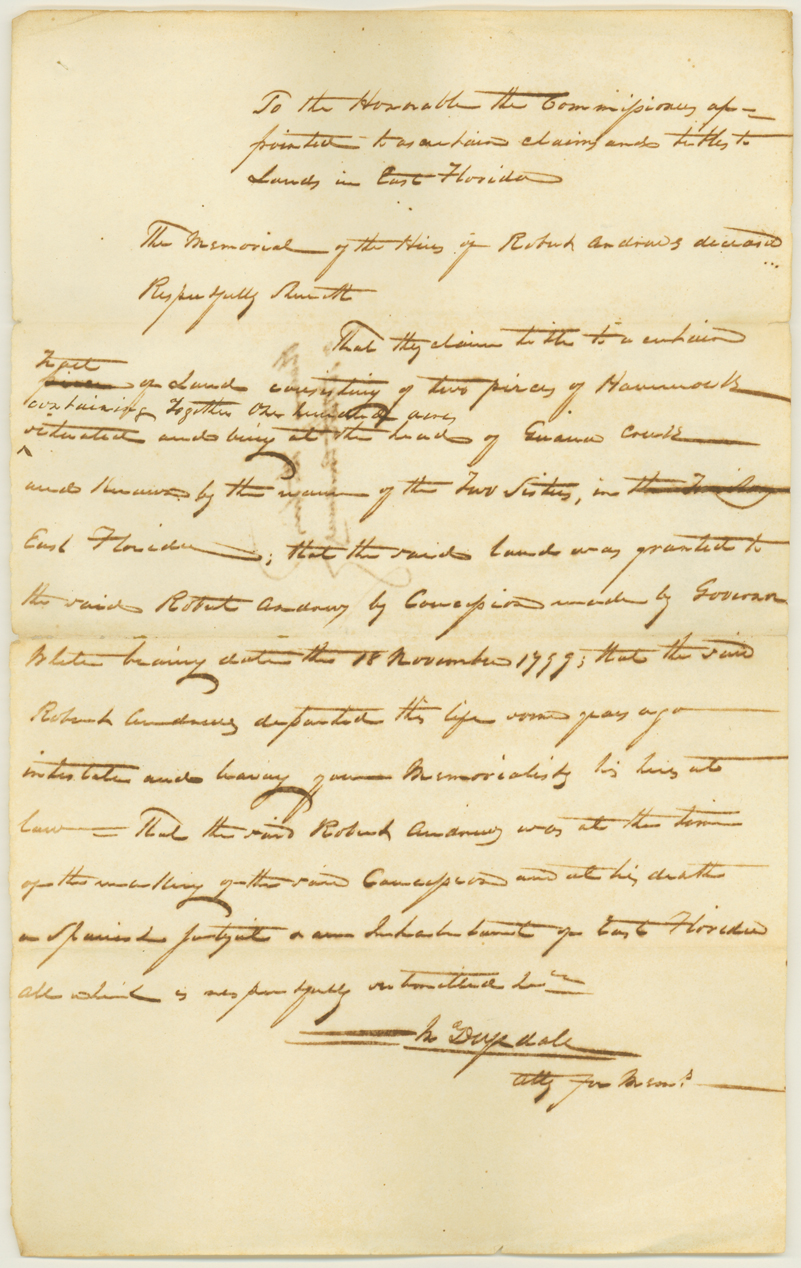 To the Honorable the Commissioners ap=
pointed to ascertain claims and titles to
Lands in East Florida
The Memorial of the Heirs of Robert Andrews deceased
Respectfully Sheweth
That they claim title to a certain
tract
piece of Land consisting of two pieces of Hammock
containing together One hundred acres
situated and being at the head of Guana Creek
and known by the name of the Two Sisters, in the Territory
East Florida; that the said land was granted to
the said Robert Andrews by Concession made by Governor
White bearing date the 18 November 1799; that the said
Robert Andrews departed this life some years ago
intestate and leaving your Memorialists his heirs at
law — That the said Robert Andrews was at the time
of the making of the said Concession and at his death
a Spanish subject & an Inhabitant of East Florida
all which is respectfully submitted &c
Jno Drysdale
Atty for Mems